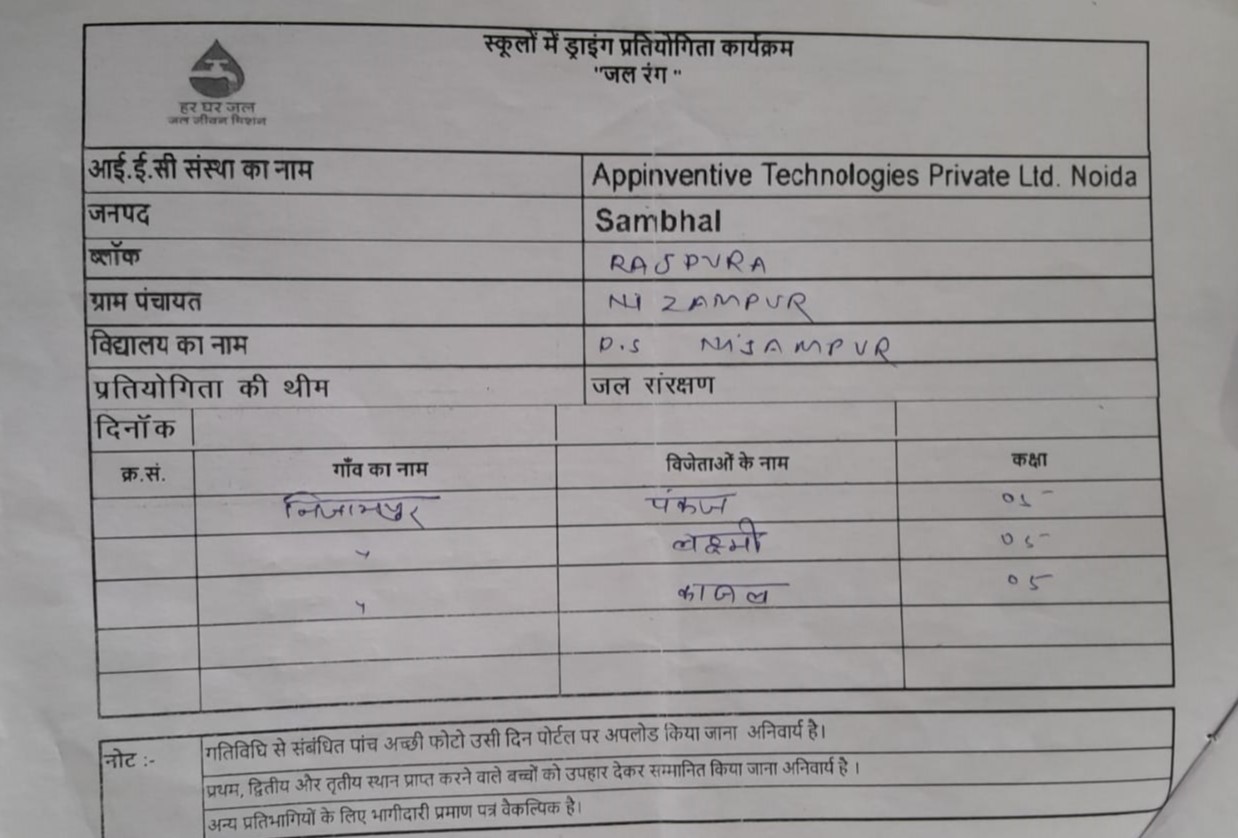 स्कूलों में ड्राइंग प्रतियोगिता कार्यक्रम
"जल रंग "
हर घर जल
जल जीवन मिशन
आई.ई.सी संस्था का नाम Appinventive Technologies Private Ltd. Noida
जनपद Sambhal
ब्लॉक RAJPURA
ग्राम पंचायत NIZAMPUR
विद्यालय का नाम P.S NIJAMPUR
प्रतियोगिता की थीम जल संरक्षण
दिनॉक
क्र.सं. गाँव का नाम विजेताओं के नाम कक्षा
निजामपुर पंकज 05
" लक्ष्मी 05
" काजल 05
नोट :- गतिविधि से संबंधित पांच अच्छी फोटो उसी दिन पोर्टल पर अपलोड किया जाना अनिवार्य है।
प्रथम, द्वितीय और तृतीय स्थान प्राप्त करने वाले बच्चों को उपहार देकर सम्मानित किया जाना अनिवार्य है ।
अन्य प्रतिभागियों के लिए भागीदारी प्रमाण पत्र वैकल्पिक है।